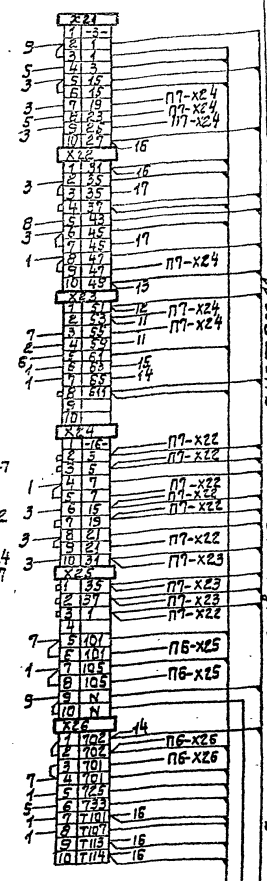 X21
1 -3-
9 2 1
3 1
5 4 3
3 5 15
6 15 П7-X24
3 7 19 П7-X24
5 8 23 П7-X24
3 9 25
10 27 16
X22
1 31 16
3 2 35
3 35 17
4 37
8 5 43
3 6 45
7 45 17
1 8 47
9 47 П7-X24
10 49 13
X23
1 51 12 П7-X24
2 53 11
7 3 55 П7-X24
2 4 59 11
6 5 61
1 6 63 15
1 7 65 14
8 611
9
10
X24
1 -16-
2 3 П7-X22
3 5 П7-X22
1 4 7
5 7 П7-X22
3 6 15 П7-X22
7 19 П7-X22
3 8 21
9 21 П7-X22
3 10 31 П7-X23
X25
1 35 П7-X23
2 37 П7-X23
3 1 П7-X22
4
7 5 101
6 101 П6-X25
1 7 105
8 105 П6-X25
9 9 N
10 N
X26
1 702 14
2 702 П6-X26
3 701 П6-X26
7 4 701
1 5 725
5 6 733
1 7 T101 16
1 8 T107
9 T113 16
10 T114 16